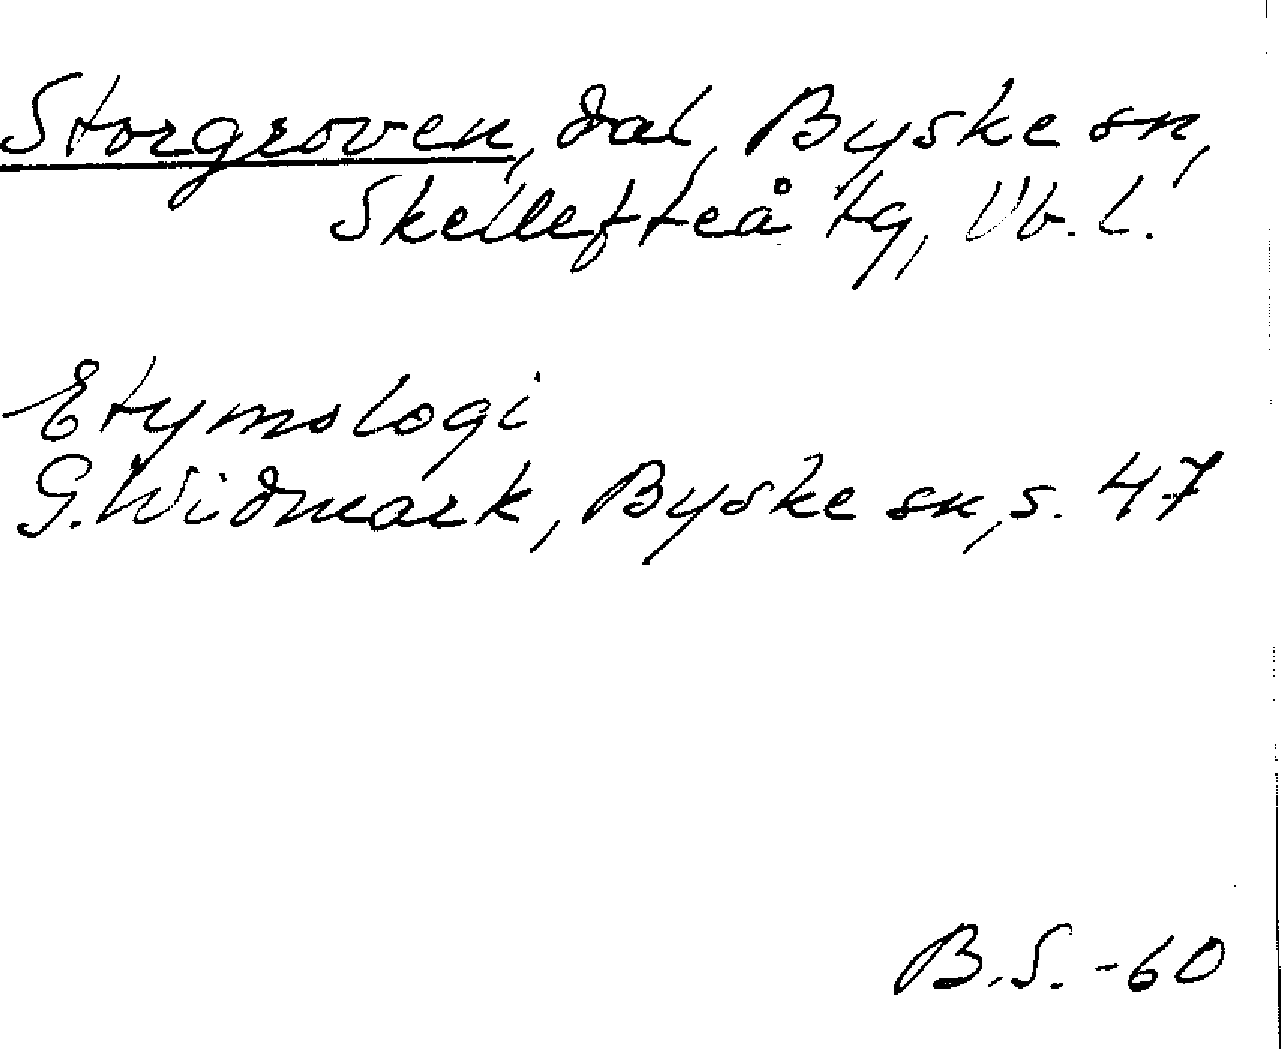 Storgroven, dal, Byske sn,
Skellefteå tg, Vb. l.
Etymologi
G. Widmark, Byske sn, s. 47
B.S. -60